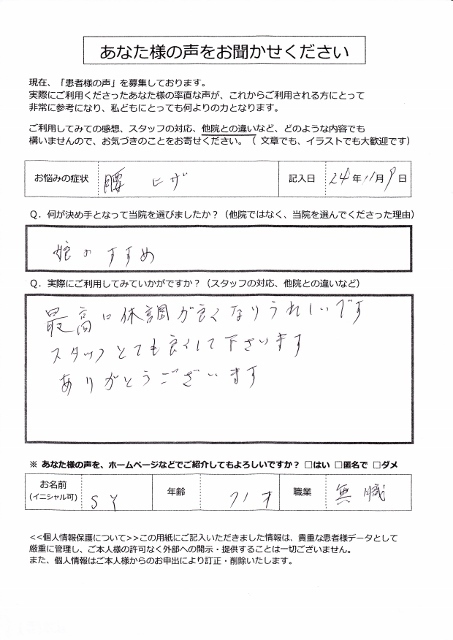 あなた様の声をお聞かせください
現在、「患者様の声」を募集しております。
実際にご利用くださったあなた様の率直な声が、これからご利用される方にとって
非常に参考になり、私どもにとっても何よりの力となります。
ご利用してみての感想、スタッフの対応、他院との違いなど、どのような内容でも
構いませんので、お気づきのことをお寄せください。（ 文章でも、イラストでも大歓迎です）
お悩みの症状 腰 ヒザ 記入日 24年11月9日
Q．何が決め手となって当院を選びましたか？（他院ではなく、当院を選んでくださった理由）
娘のすすめ
Q．実際にご利用してみていかがですか？（スタッフの対応、他院との違いなど）
最高に体調が良くなりうれしいです
スタッフとても良くして下さいます
ありがとうございます
※ あなた様の声を、ホームページなどでご紹介してもよろしいですか？ □はい □匿名で □ダメ
お名前 年齢 71才 職業 無職
(イニシャル可) SY
<<個人情報保護について>>この用紙にご記入いただきました情報は、貴重な患者様データとして
厳重に管理し、ご本人様の許可なく外部への開示・提供することは一切ございません。
また、個人情報はご本人様からのお申出により訂正・削除いたします。